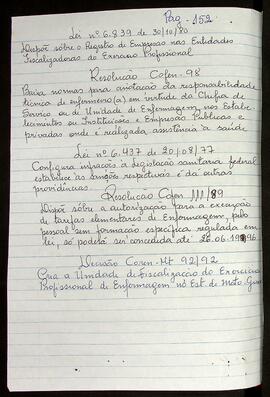 Pag - 152
Lei nº 6.839 de 30/10/80
Dispõe sôbre o Registro de Empresas nas Entidades
Fiscalizadoras do Exercício Profissional
Resolução Cofen-98
Baixa normas para anotação da responsabilidade
técnica de enfermeiro(a) em virtude da Chefia de
Serviço ou de Unidade de Enfermagem, nos Estabe
lecimentos ou Instituições e Empresas Públicas e
privadas onde é realizada assistência à saúde
Lei nº 6.437 de 20/08/77
Configura infrações à legislação sanitária federal
estabelece as sanções respectivas e dá outras
providências.
Resolução Cofen 111/89
Dispõe sôbre a autorização para a execução
de tarefas elementares de Enfermagem, pelo
pessoal sem formação específica regulada em
lei, só poderá ser concedida até 26.06.1996
Decisão Coren-Mt 92/92
Cria a Unidade de fiscalização do Exercício
Profissional de Enfermagem no Est. de Mato-Grosso